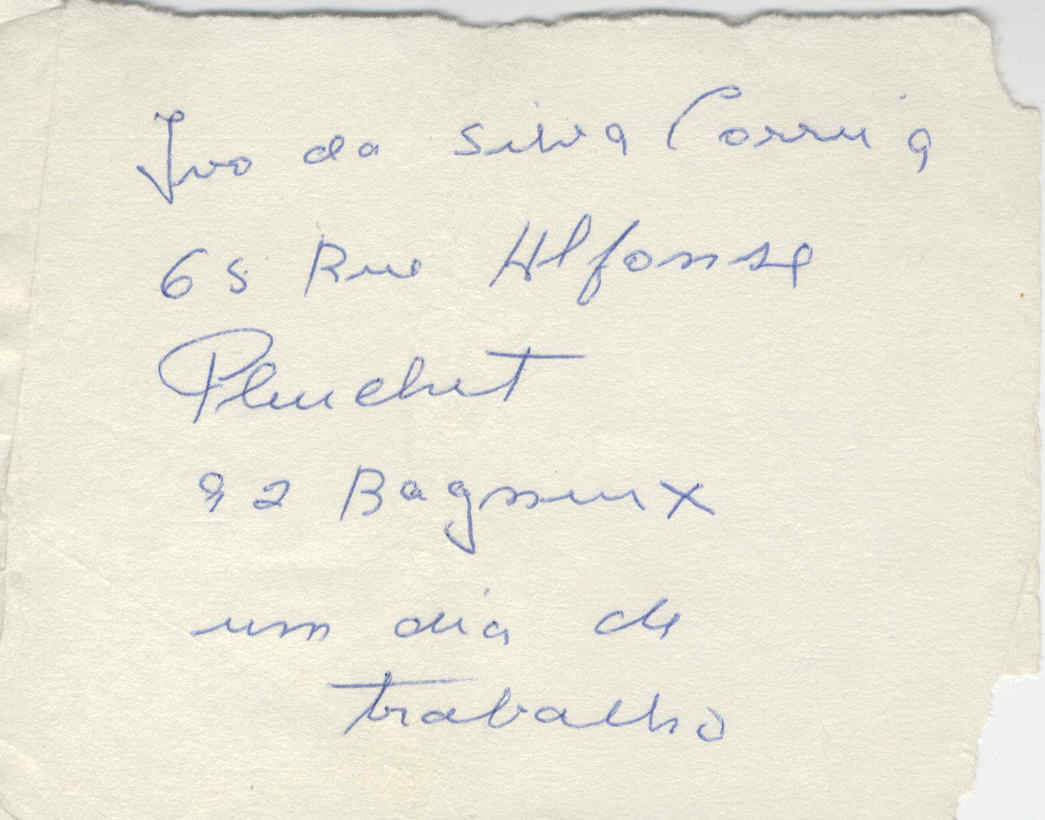 Ivo da Silva Correia
65 Rue Alfonse
Pluchet
92 Bagneux
um dia de
trabalho